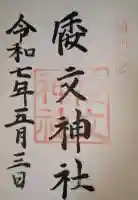 倭文神社
令和七年五月三日